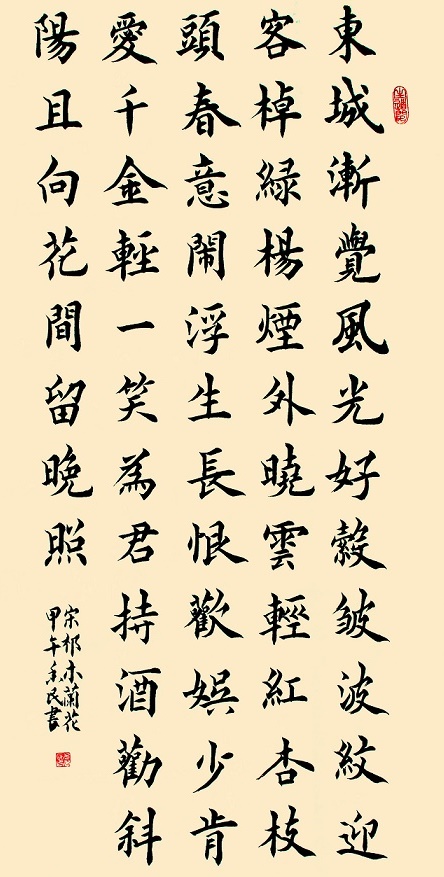 東城漸覺風光好縠皺波紋迎
客棹緑楊煙外曉雲輕紅杏枝
頭春意鬧浮生長恨歡娛少肯
愛千金輕一笑為君持酒勸斜
陽且向花間留晚照
宋祁木蘭花
甲午民書